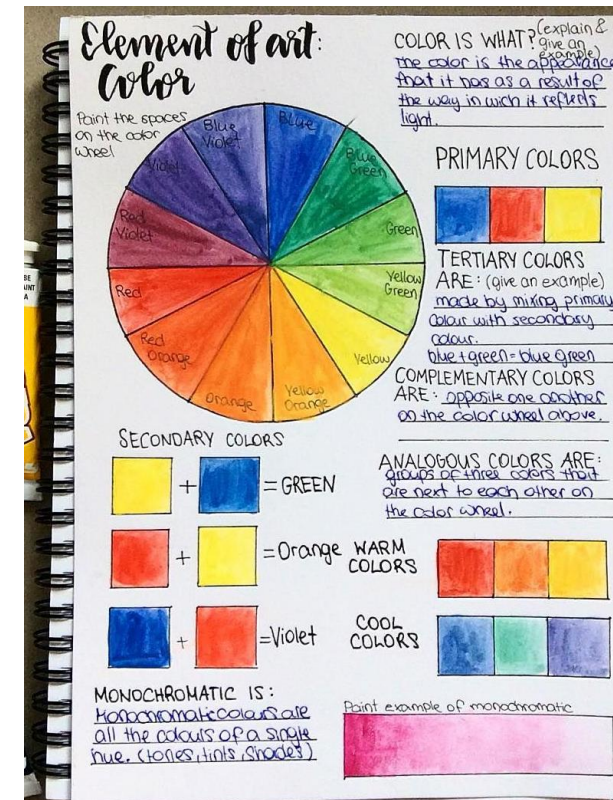 Element of art:
Color
Paint the spaces
on the color
wheel
Blue
Blue
Green
Green
Yellow
Green
Yellow
Yellow
Orange
Orange
Red
Orange
Red
Red
Violet
Violet
Blue
Violet
COLOR IS WHAT? (explain &
give an
example)
the color is the appearance
that it has as a result of
the way in wich it reflects
light.
PRIMARY COLORS
TERTIARY COLORS
ARE: (give an example)
made by mixing primary
colour with secondary
colour.
blue + green = blue green
COMPLEMENTARY COLORS
ARE: opposite one another
on the color wheel above.
SECONDARY COLORS
+ = GREEN
+ = Orange
+ = Violet
ANALOGOUS COLORS ARE:
groups of three colors that
are next to each other on
the color wheel.
WARM
COLORS
COOL
COLORS
MONOCHROMATIC IS:
Monocromatic colours are
all the colours of a single
hue. (tones, tints, shades)
Paint example of monochromatic